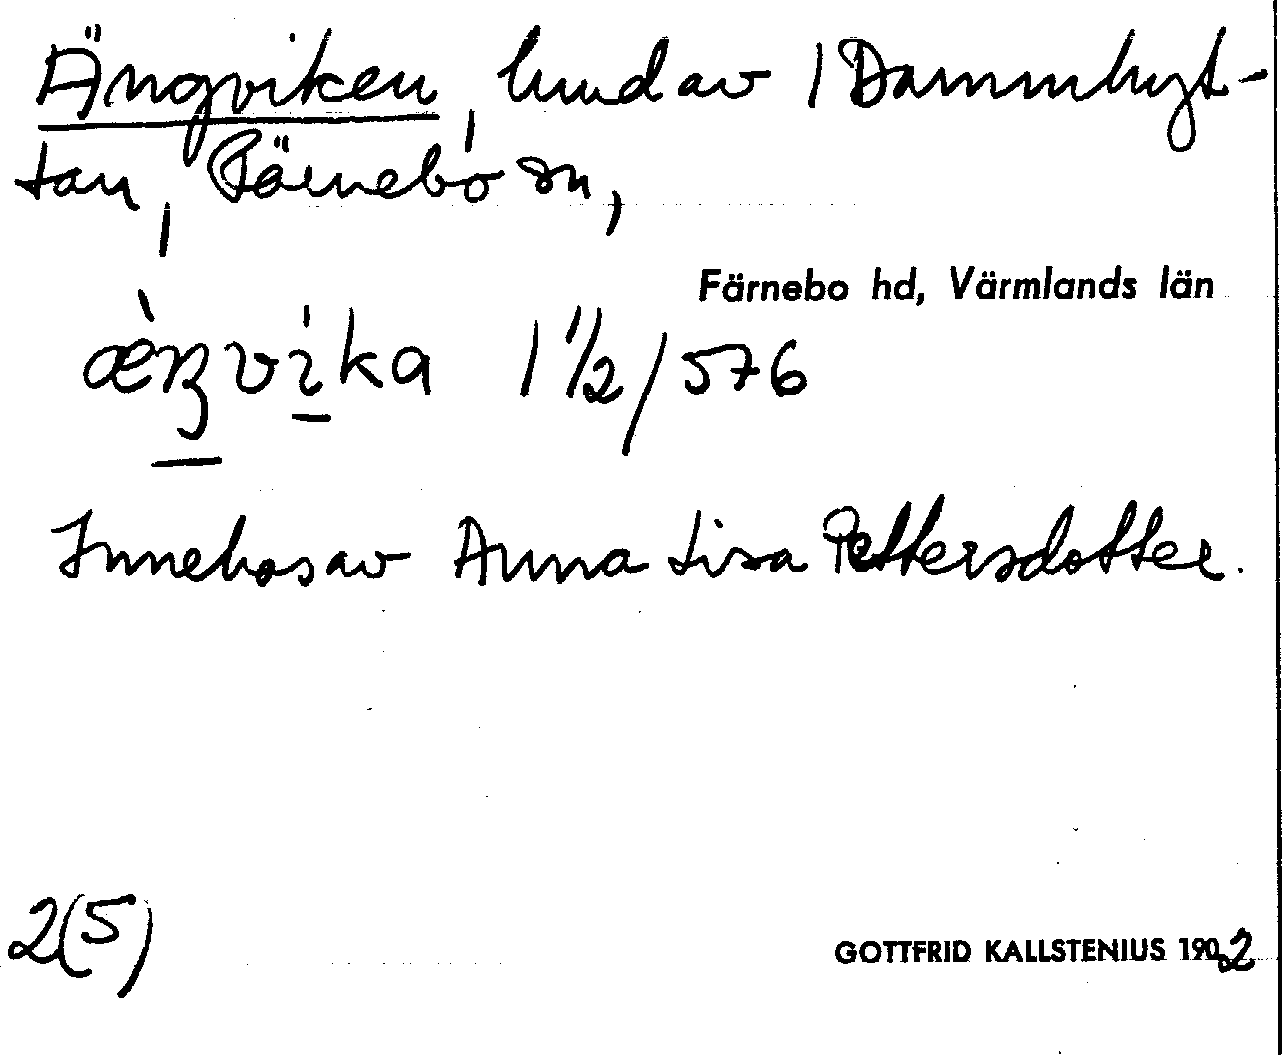 Ängviken, lund av / Dammhyt-
tan, Färnebo sn,
Färnebo hd, Värmlands län
æ̀ŋvika 1 1/2 / 576
Innehas av Anna Lisa Pettersdotter.
2(5)
GOTTFRID KALLSTENIUS 1902